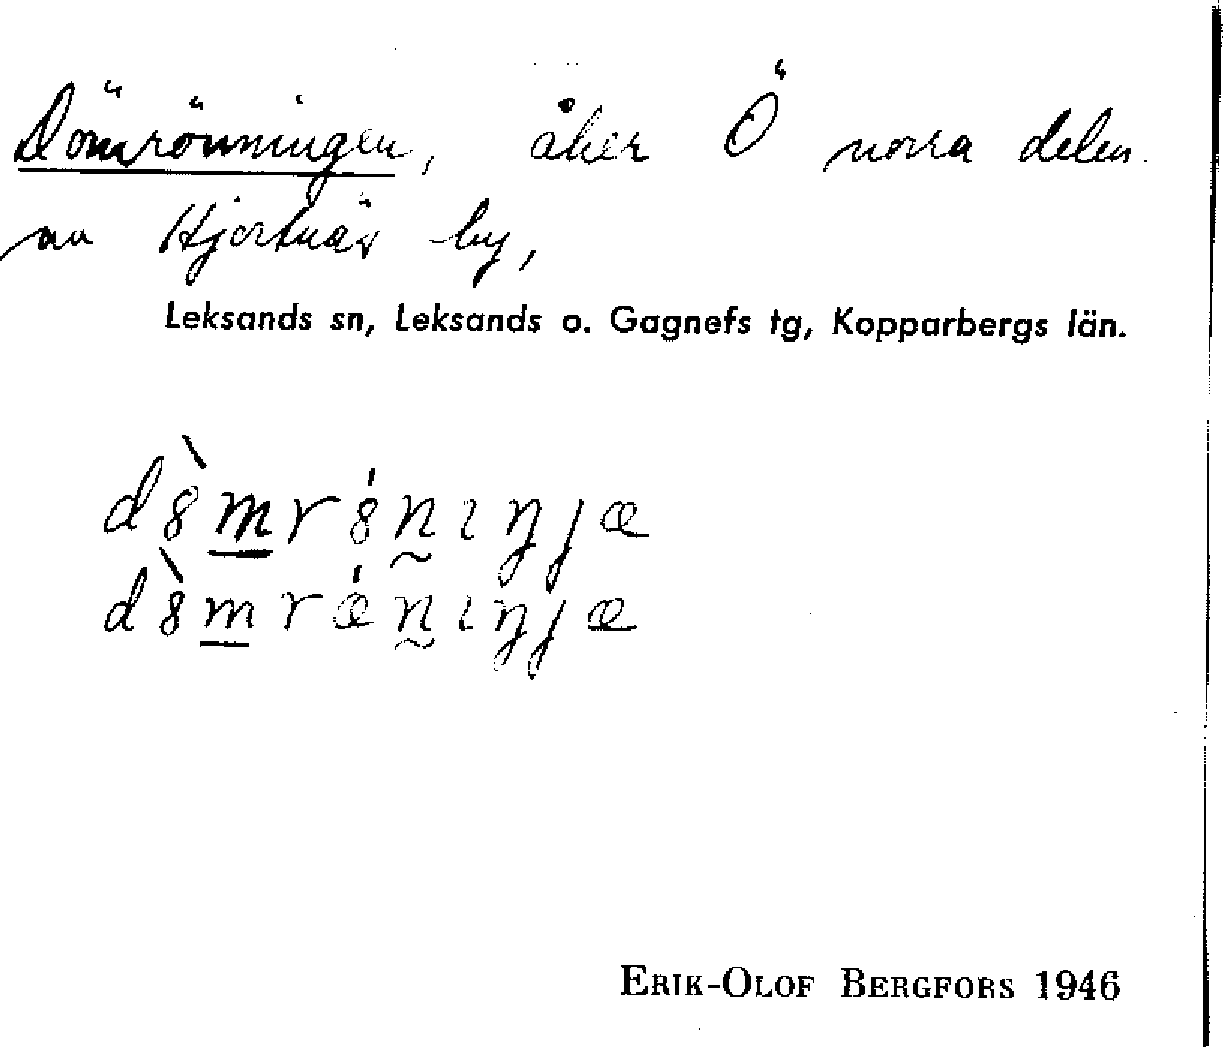 Dömrönningen, åker Ö norra delen
av Hjortnäs by,
Leksands sn, Leksands o. Gagnefs tg, Kopparbergs län.
ERIK-OLOF BERGFORS 1946